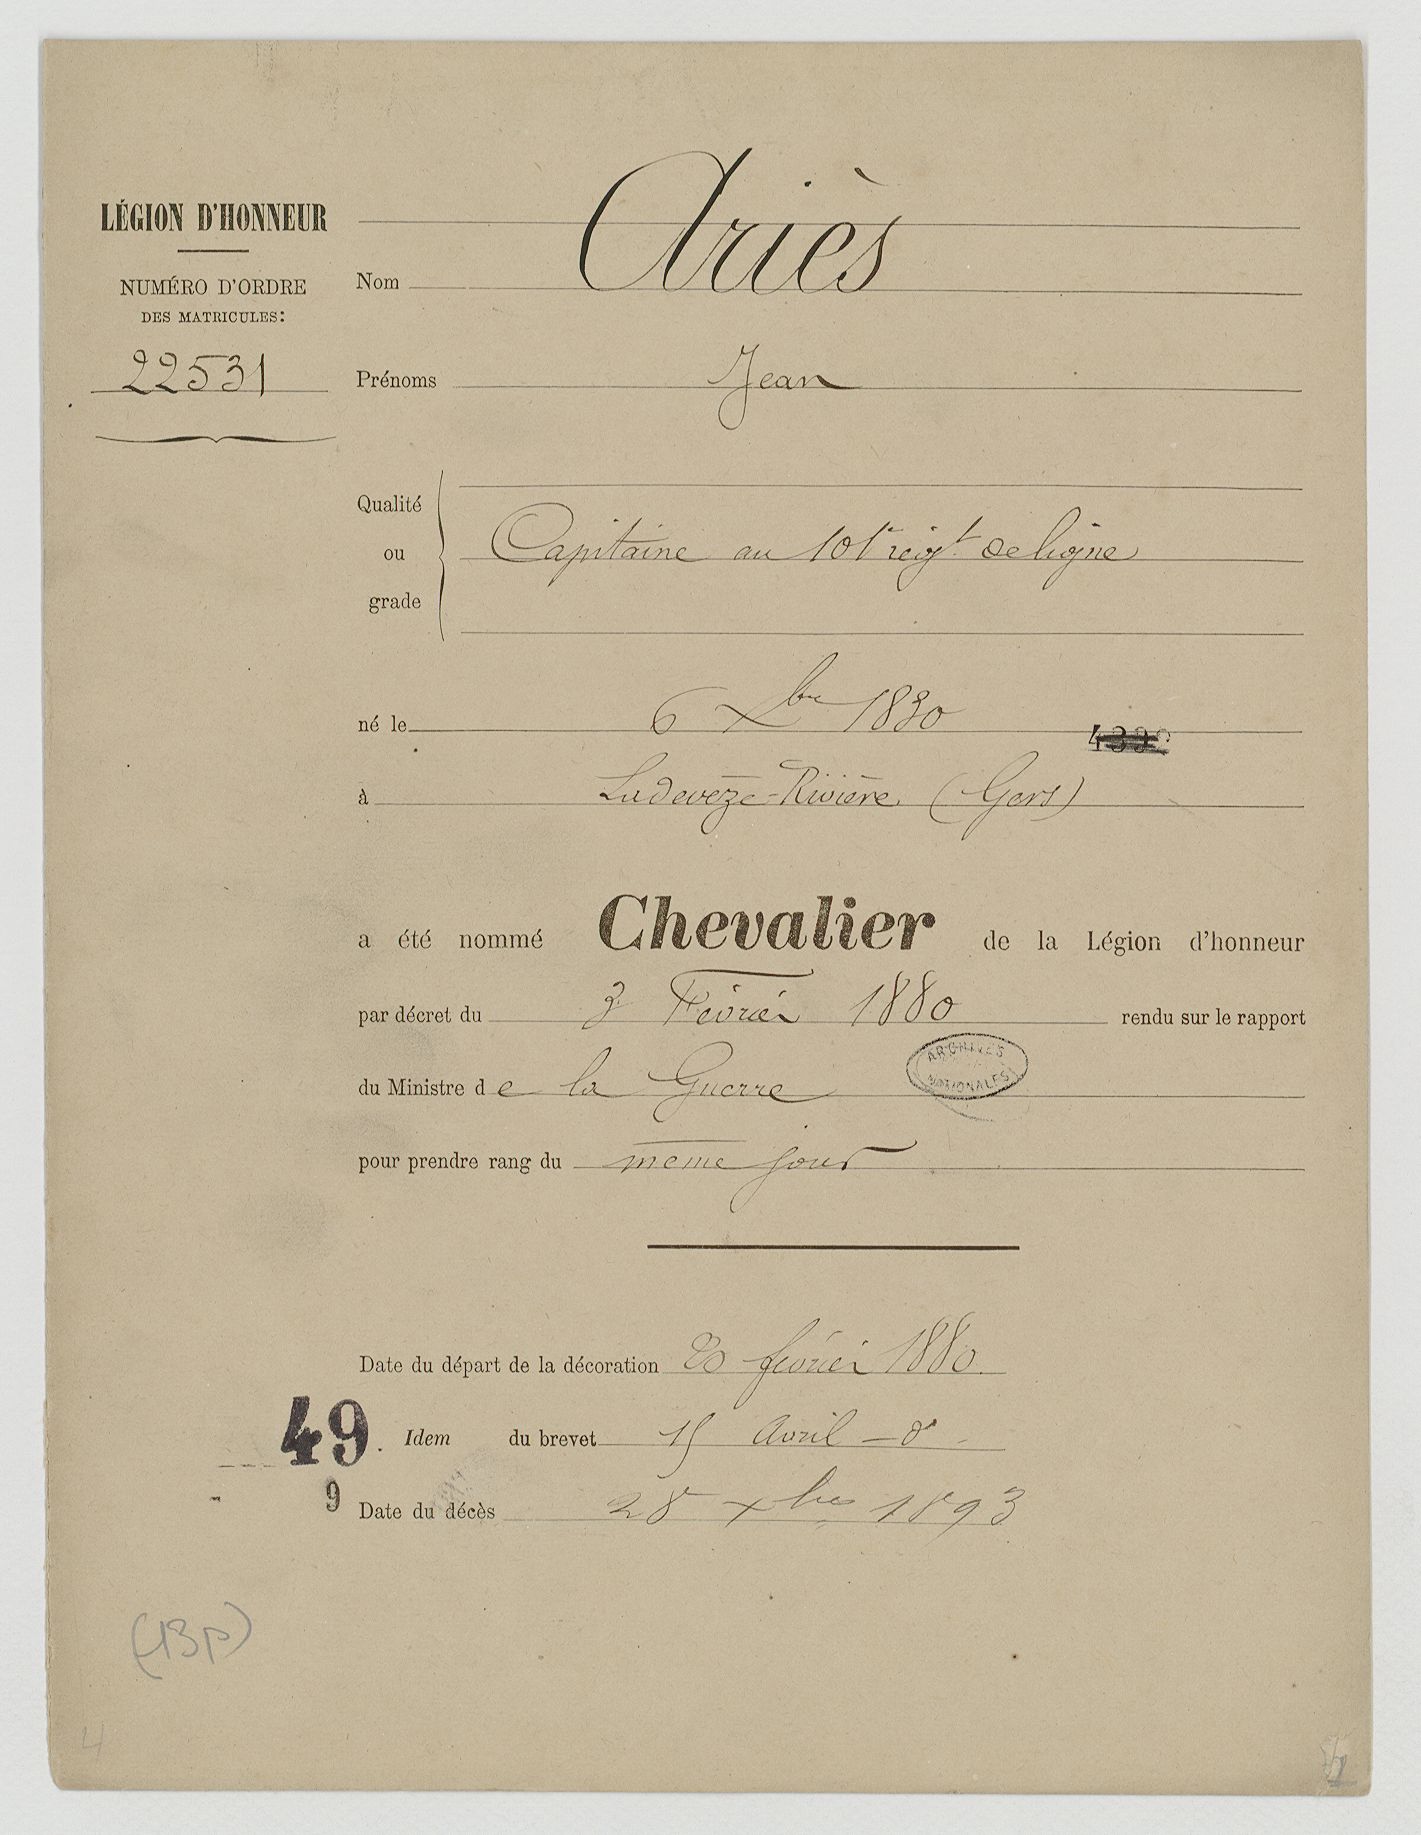 LÉGION D'HONNEUR
NUMÉRO D'ORDRE
DES MATRICULES:
22531
Nom Ariès
Prénoms Jean
Qualité
ou
grade
Capitaine au 101e régt de ligne
né le 6 Xbre 1830
à Ladevèze-Rivière (Gers)
a été nommé Chevalier de la Légion d'honneur
par décret du 3 Février 1880 rendu sur le rapport
ARCHIVES
NATIONALES
du Ministre de la Guerre
pour prendre rang du même jour
Date du départ de la décoration 20 février 1880
49. Idem du brevet 15 Avril - do
9 Date du décès 28 Xbre 1893
(13p)
4